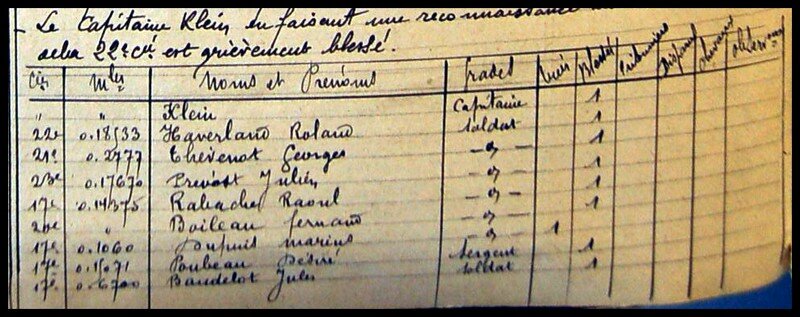 - Le Capitaine Klein en faisant une reconnaissance
22e Cie est grièvement blessé.
Cies Mles Noms et Prénoms Grades Tués Blessés Prisonniers Disparus Chevaux Observons
" " Klein Capitaine 1
22e 0.18533 Haverland Roland soldat 1
21e 0.2777 Thevenot Georges -"- 1
23e 0.17670 Prevost Julien -"- 1
17e 0.14375 Rabache Raoul -"- 1
20e " Boileau fernand -"- 1
17e 0.1060 Dupuis marius -"- 1
17e 0.15071 Poubeau Désiré Sergent 1
17e 0.6700 Baudelot Jules soldat 1